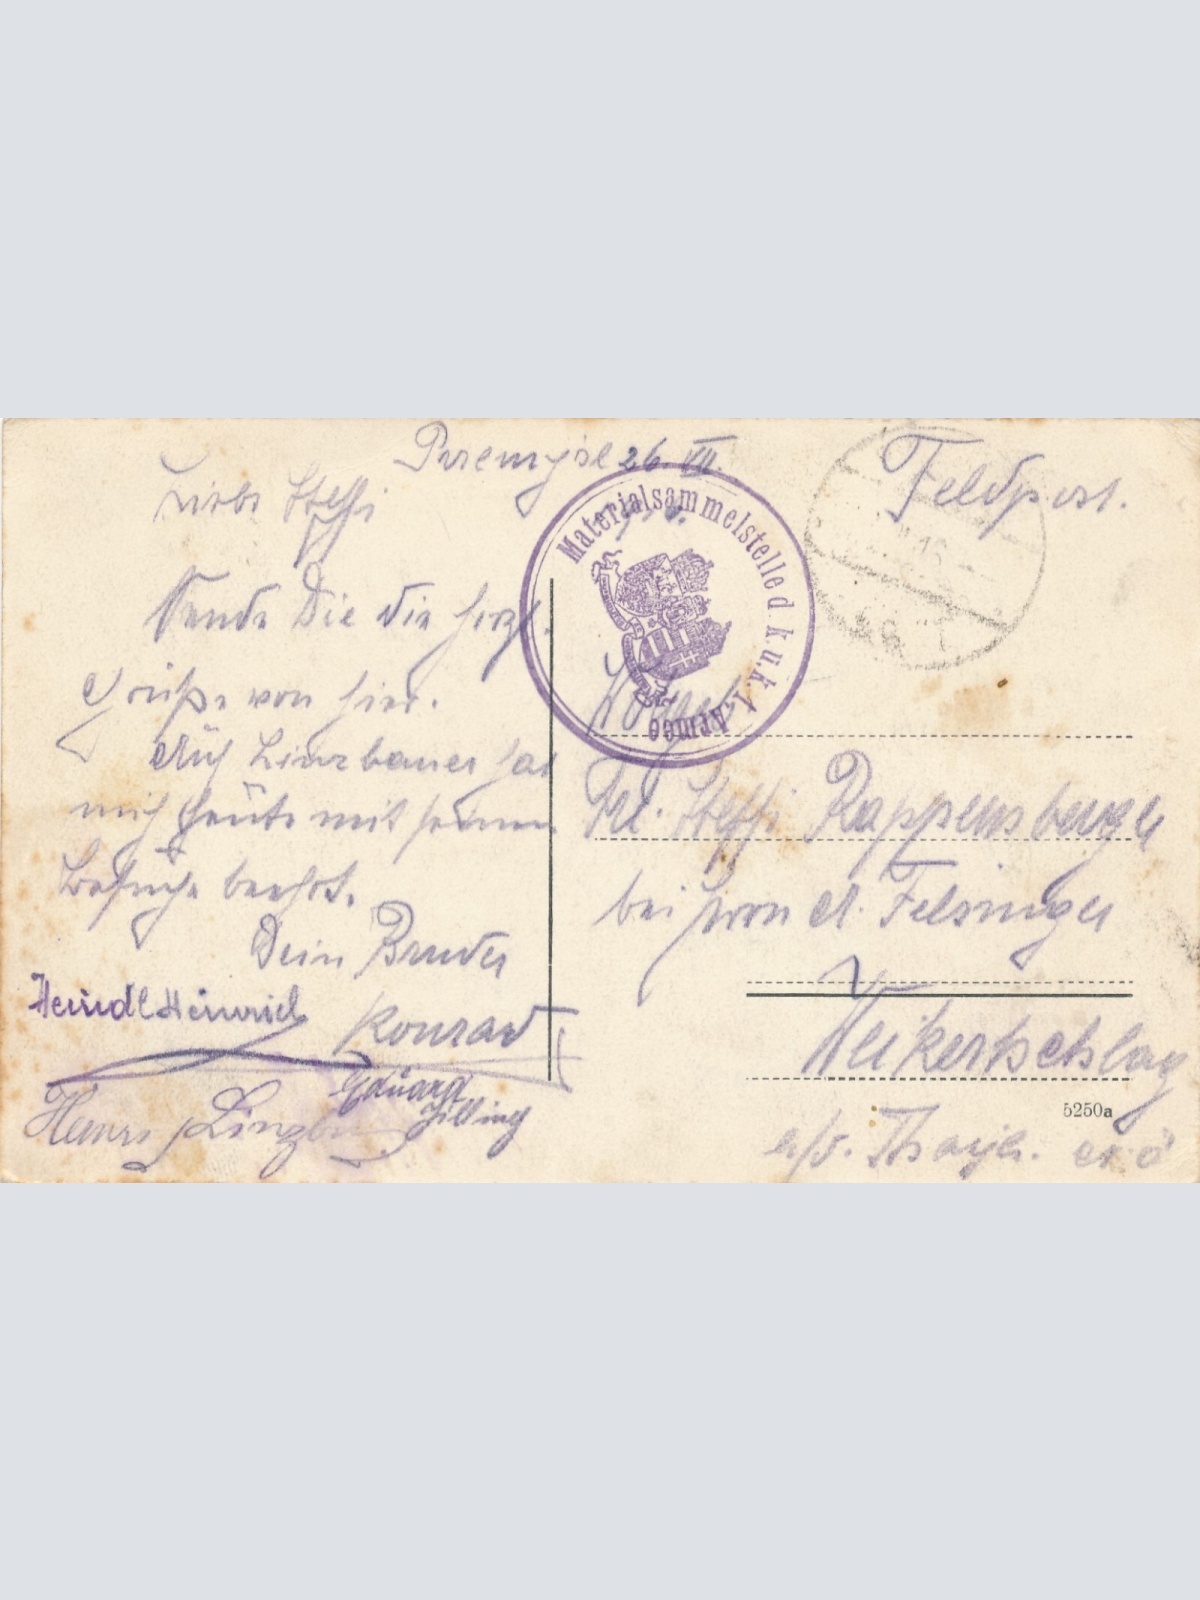 Przemysl 26 VII.
Feldpost.
Liebe Steffi
Sende Dir die herzl.
Grüße von hier.
Auch Linzbauer hat
mich heute mit seinem
Besuche beehrt.
Dein Bruder
Konrad
Heindl Heinrich
Eduard
Hans Linzb
Materialsammelstelle d. k. u. k. 1. Armee
Frl. Steffi Rappensberger
bei Frau A. Felsinger
Weikertschlag
5250a
a/d. Thaya. N.Ö